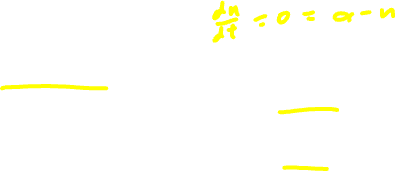 dn/dt = 0 = α - n